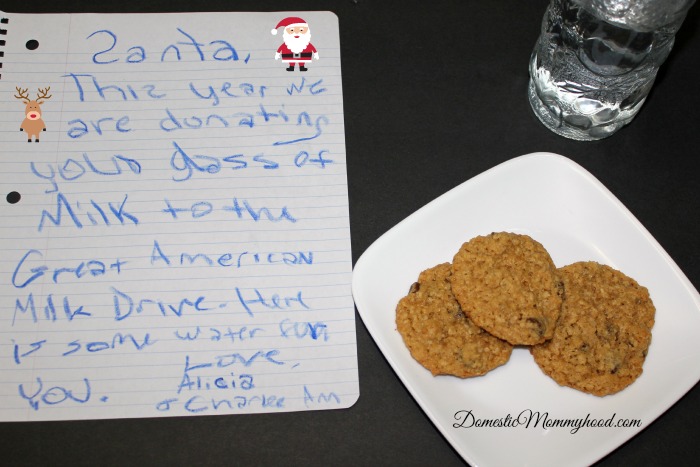 Santa,
This year we
are donating
your glass of
Milk to the
Great American
Milk Drive. Here
is some water for
you. Love,
Alicia
& Charlee Ann
DomesticMommyhood.com